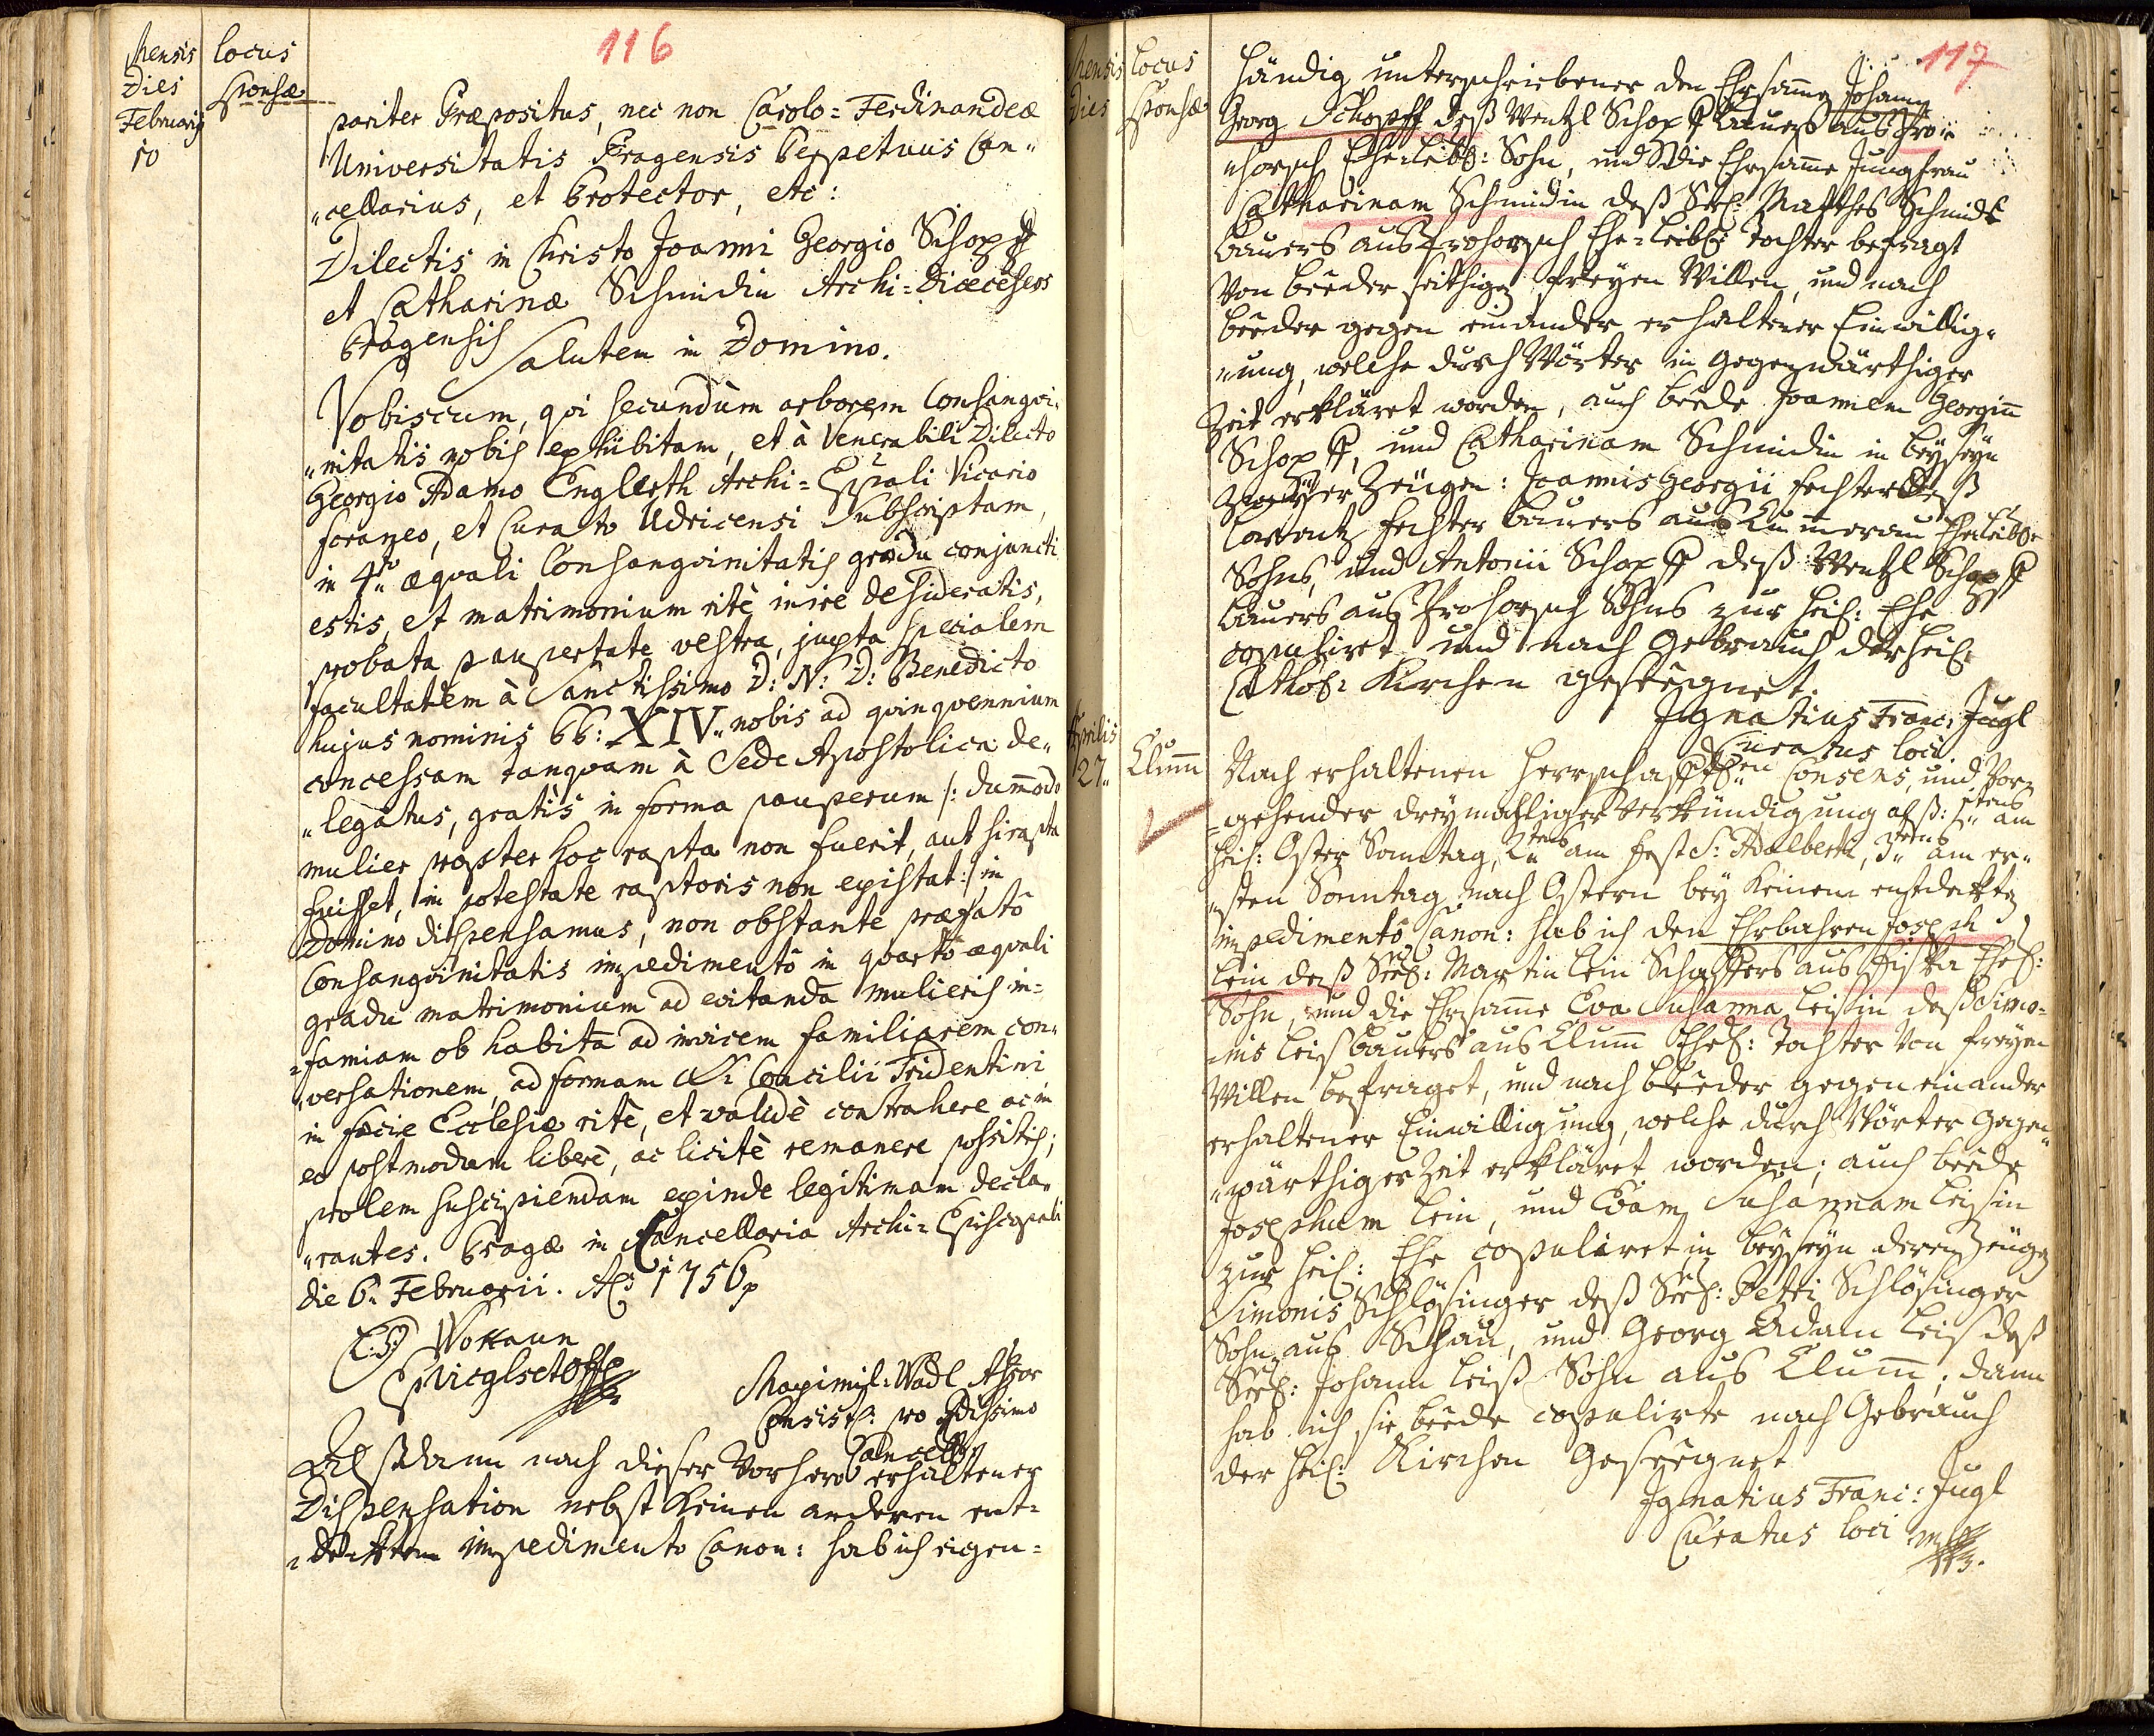 116
Mensis
Dies
Februarij
10
locus
sponsæ
pariter Præpositus, nec non Carolo = Ferdinandeæ
Universitatis Pragensis Perpetuus Can„
„cellarius, et Protector, etc:
Dilectis in Christo Joanni Georgio Schopff
et Catharinæ Schmidin Archi = Diœceseos
Pragensis
Salutem in Domino.
Vobiscum, qvi secundùm arborem Consangvi„
„nitatis nobis exhibitam, et à Venerabili Dilecto
Georgio Adamo Englerth Archi = Eppali Vicario
foraneo, et Curato Udricensi Subscriptam,
in 4to æquali Consangvinitatis gradu conjuncti
estis, et matrimonium ritè inire desideratis,
probata paupertate vestra, juxta specialem
facultatem à Sanctissimo D: N: D: Benedicto
hujus nominis PP: XIV. nobis ad qvinqvennium
concessam tanqvam à Sede Apostolica de„
„legatus, gratis in forma pauperum /: dummodo
mulier propter hoc rapta non fuerit, aut si rapta
fuisset, in potestate raptoris non existat :/ in
Domino dispensamus, non obstante præfato
Consangvinitatis impedimentô in qvarto æqvali
gradu matrimonium ad evitanda mulieris in=
=famiam ob habita ad invicem familiarem con„
„versationem, ad formam S: Concilii Tridentini
in facie Ecclesiæ ritè, et validè contrahere ac in
eo postmodum liberè, ac licitè remanere possitis;
prolem suscipiendam exinde legitimam decla„
„rantes. Pragæ in Cancellaria Archi = Episcopali
die 6. Februarii. Ao 1756
L:S: Wokaun
Vicglset Offlis
Maximil: Wadl Assor
Consist: pro
Cancell:
Alsdann nach dieser Vorhero erhaltener
Dispensation nebst keinen anderen ent=
=deckten impedimento Canon: hab ich eigen=
117
Mensis
Dies
Locus
Sponsæ
händig unterschriebener den Ehrsamen Johann
Georg Schopff deß Wentzl Schopff Bauers aus Pro=
horsch Ehe=leibl: Sohn, und die Ehrsame Jungfrau
Catharinam Schmidin deß Seel: Matthes Schmidt
Bauers aus Prohorsch Ehe=leibl: Tochter befragt
Von beeder seithigen freyen Willen, und nach
beeder gegen einander erhaltener Einwillig„
„ung, welche durch Wörter in gegenwärthiger
Zeit erkläret worden, auch beede Joannem Georgium
Schopff, und Catharinam Schmidin in beyseyn
Zweyer Zeugen: Joannis Georgii Fechter deß
Lorentz Fechter Bauers aus Kummerau Eheleibl:
Sohns, und Antonii Schopff deß Wentzl Schopff
Bauers aus Prohorsch Sohns zur heil: Ehe
copuliret und nach Gebrauch der heil:
Cathol: Kirchen geseegnet.
Ignatius Franc: Jugl
Curatus loci
Aprilis
27.
Klumm
Nach erhaltenen Herrschaftl: Consens, und Vor„
=gehender dreymahliger Verkündigung alß: 1tens am
heil: Oster Sonntag, 2tens am Fest S: Adalberti, 3tens am er„
„sten Sonntag nach Ostern bey keinem entdeckten
impedimentô Canon: hab ich den Ehrbahren Joseph
Lein deß Seel: Martin Lein Schaffers aus Ehel:
Sohn, und die Ehrsame Eva Susanna Leißin deß Simo=
=nis Leiß Bauers aus Klumm Ehel: Tochter Von freyen
Willen befraget, und nach beeder gegen einander
erhaltener Einwilligung, welche durch Wörter gegen„
„wärthiger Zeit erkläret worden; auch beede
Josephum Lein, und Evam Susannam Leißin
zur heil: Ehe copuliret, in beyseyn deren Zeugen
Simonis Schlösinger deß Seel: Petri Schlösinger
Sohn aus Schau, und Georg Adam Leiß deß
Seel: Johann Leiß Sohn aus Klumm, dann
hab ich sie beede copulirte nach Gebrauch
der heil: Kirchen Geseegnet
Ignatius Franc: Jugl
Curatus loci mpp.